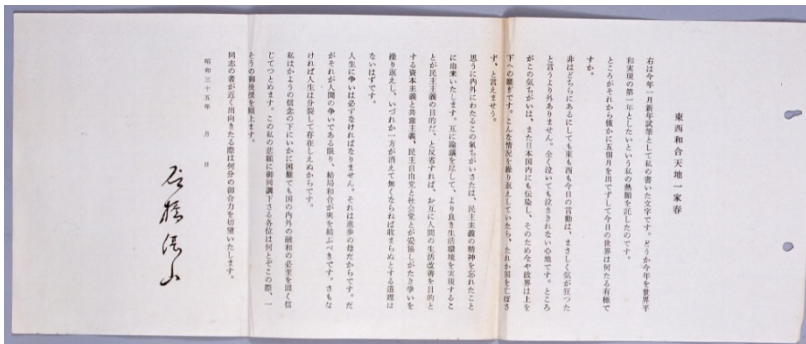 東西和合天地一家春
右は今年一月新年試筆として私の書いた文字です。どうか今年を世界平
和実現の第一年としたいという私の熱願を託したのです。
ところがそれから僅かに五個月を出でずして今日の世界は何たる有様で
すか。
非はどちらにあるにしても東も西も今日の言動は、まさしく気が狂つた
と言うより外ありません。全く泣いても泣ききれない心地です。ところ
がこの気ちがいは、また日本国内にも伝染し、そのため今や政界は上を
下への騒ぎです。こんな情況を繰り返えしていたら、たれか国を亡ぼさ
ず、と言えませう。
思うに内外にわたるこの気ちがいさたは、民主主義の精神を忘れたこと
に由来いたします。互に論議を尽して、より良き生活環境を実現するこ
とが民主主義の目的だ、と反省すれば、お互に人間の生活改善を目的と
する資本主義と共産主義、民主自由党と社会党とが妥協しがたき争いを
繰り返えし、いづれか一方が消えて無くならねば収まらぬとする道理は
ないはずです。
人生に争いは必ずなければなりません。それは進歩の母だからです。だ
がそれが人間の争いである限り、結局和合が実を結ぶべきです。さもな
ければ人生は分裂して存在しえぬからです。
私はかようの信念の下にいかに困難でも国の内外の融和の必至を固く信
じてつとめます。この私の悲願に御同調下さる各位は何とぞこの際、一
そうの御後援を願上ます。
同志の者が近く出向きたる際は何分の御合力を切望いたします。
昭和三十五年 月 日
石橋湛山